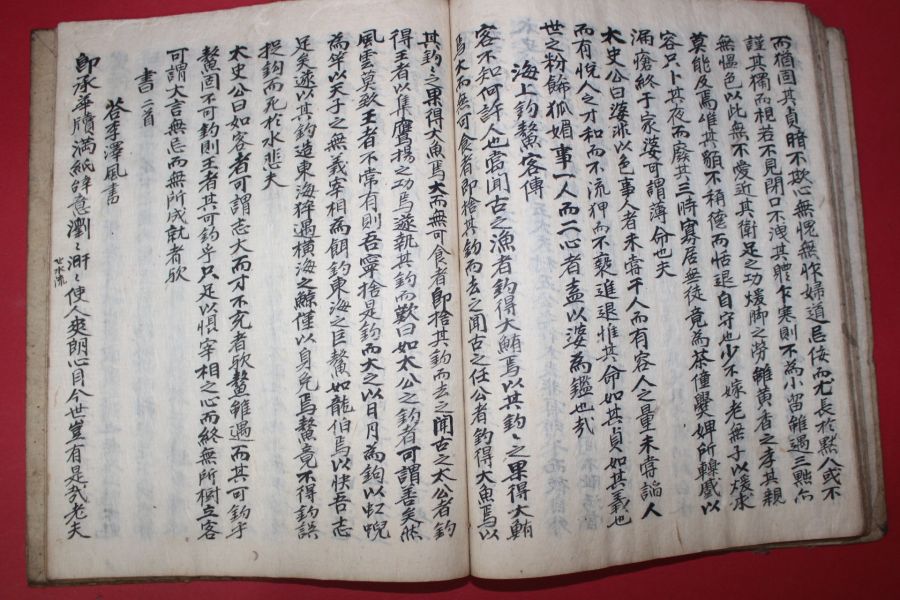 而楛固其貞暗不欺心無愧無怍婦道忌佞而尤長於默人或不
謹其獨而視若不見閉口不洩其體乍寒則不為小留雖遇三黜而
無慍色以此無不愛近其衛足之功煖脚之勞雖黃香之孝其親
莫能及焉雖其額不稱德而恬退自守也少不嫁老無子以煖求
容只卜其夜而廢其三時寡居無徒竟為茶僮爨婢所轢戲以
漏瘡終于家婆可謂薄命也夫
太史公曰婆非以色事人者未嘗干人而有容人之量未嘗諂人
而有悅人之才和而不流狎而不褻進退惟其命如其貞如其義也
世之粉飾狐媚事一人而二心者盍以婆為鑑也哉
海上釣鰲客傳
客不知何許人也嘗聞古之漁者釣得大鮪焉以其釣之果得大鮪
焉大而無可食者即捨其釣而去之聞古之任公者釣得大魚焉以
其釣釣之果得大魚焉大而無可食者即捨其釣而去之聞古之太公者釣
得王者以集鷹揚之功焉遂執其釣而歎曰如太公之釣者可謂善矣然
風雲莫致王者不常有則吾寧捨是釣而大之以月為鉤以虹蜺
為竿以天子之無義宰相為餌釣東海之巨鰲如龍伯焉以快吾志
足矣遂以其釣造東海猝遇橫海之鯨僅以身免焉鰲竟不得釣誤
捉釣而死於水悲夫
太史公曰如客者可謂志大而才不充者歟鰲雖遇而其可釣乎
鰲固不可釣則王者其可釣乎只足以惧宰相之心而終無所樹立客
可謂大言無忌而無所成就者歟
書 二首
答李澤風書
即承華牘滿紙辞意瀏〻漷〻使人爽朗心目今世豈有是哉老夫
水流